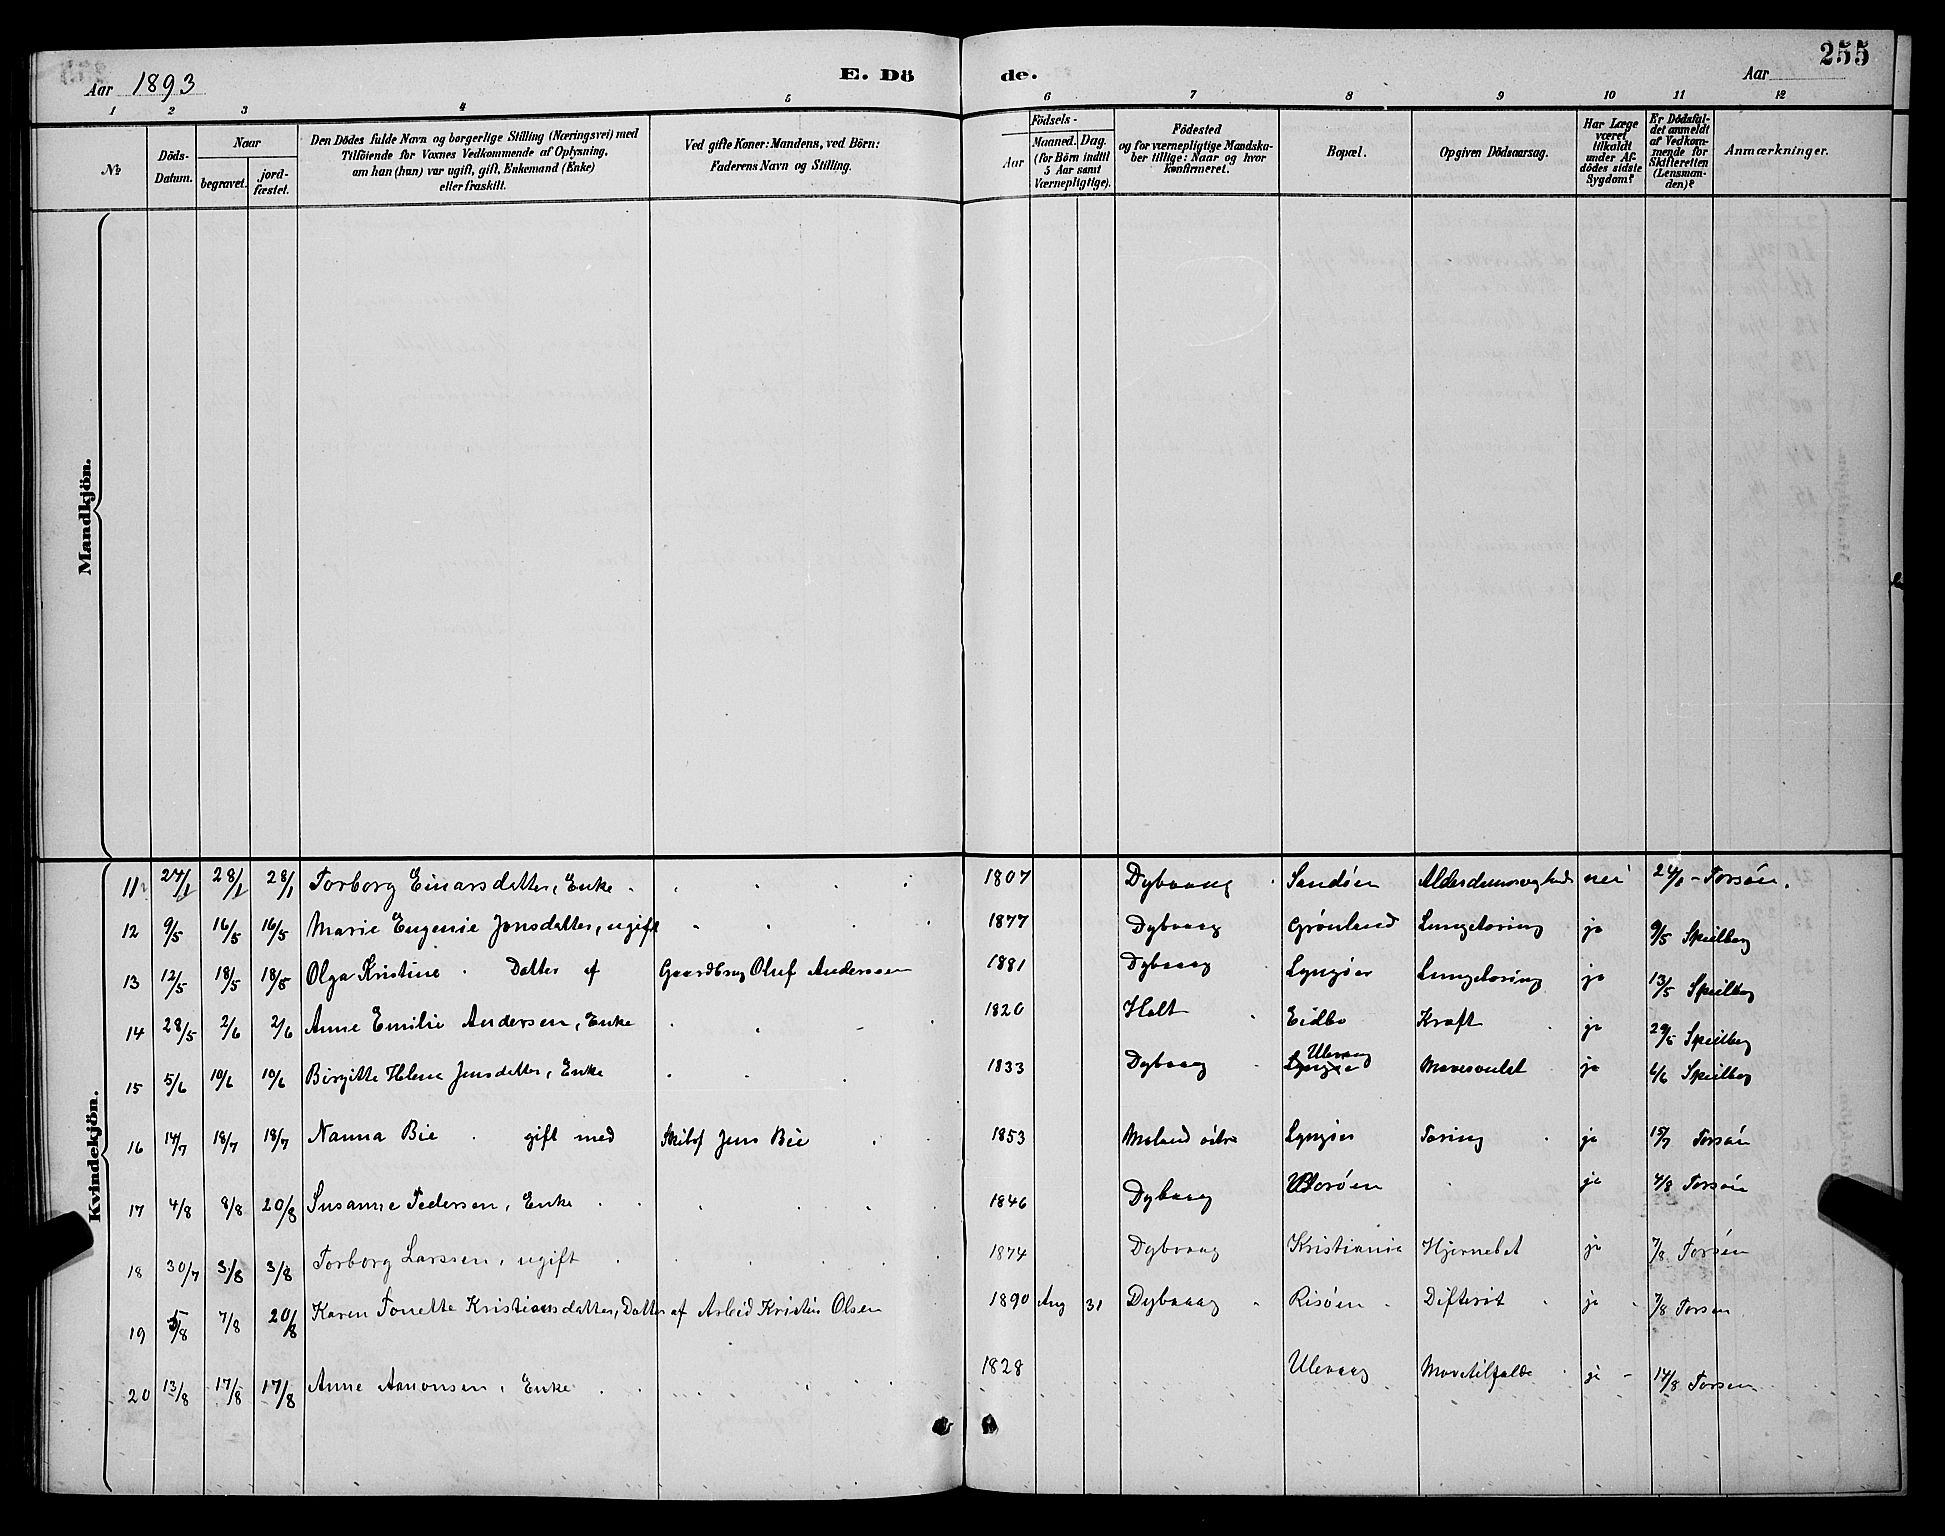 255
Aar 1893 E. Dö de. Aar
1 2 3 4 5 6 7 8 9 10 11 12
№
Döds-Datum.
Naar
begravet.
jord-fæstet.
Den Dödes fulde Navn og borgerlige Stilling (Næringsvei) med
Tilföiende for Voxnes Vedkommende af Oplysning,
om han (hun) var ugift, gift, Enkemand (Enke)
eller fraskilt.
Ved gifte Koner: Mandens, ved Börn:
Faderens Navn og Stilling.
Födsels-
Aar
Maaned. Dag.
(for Börn indtil
5 Aar samt
Værnepligtige).
Födested
og for værnepligtige Mandska-
ber tillige: Naar og hvor
konfirmeret.
Bopæl.
Opgiven Dödsaarsag.
Har Læge
været
tilkaldt
under Af-
dödes sidste
Sygdom?
Er Dödsfal-
det anmeldt
af Vedkom-
mende for
Skifteretten
(Lensman-
den)?
Anmærkninger.
Mandkjön.
Kvindekjön.
11 24/1 28/1 28/1 Torborg Einarsdatter, Enke 1807 Dybvaag Sandøen nei Torsøn.
12 9/5 16/5 16/5 Marie Eugenie Jonsdatter, ugift 1877 Dybvaag Grønland Lungetæring ja 9/5 Speilberg
13 12/5 18/5 18/5 Olga Kristine Datter af Gaardbrug Oluf Anderssen 1881 Dybvaag Lyngøer Lungetæring ja 13/5 Speilberg
14 28/5 2/6 2/6 Anne Emilie Andersen, Enke 1820 Holt Eidbo Kræft ja 29/5 Speilberg
15 5/6 10/6 10/6 Birgitte Helene Jensdatter, Enke 1833 Dybvaag Ulevaag Lyngøer Mavesvulst ja 6/6 Speilberg
16 14/7 18/7 18/7 Nanna Bie gift med Skibsf Jens Bie 1853 Moland østre Lyngøer Tæring ja 15/7 Torsøn
17 4/8 8/8 20/8 Susanne Pedersen, Enke 1846 Dybvaag Borøen ja 4/8 Torsøn
18 30/7 3/8 3/8 Torborg Larssen, ugift 1874 Dybvaag Kristiania Hjernebet ja 7/8 Torsøn
19 5/8 7/8 20/8 Karen Tonette Kristiansdatter, Datter af Arbeid Kristen Olsen 1890 Aug 31 Dybvaag Risøen Difterit ja 7/8 Torsøn
20 13/8 17/8 17/8 Anne Aanonsen, Enke 1828 Ulevaag Mavetilfælde ja 14/8 Torsøn